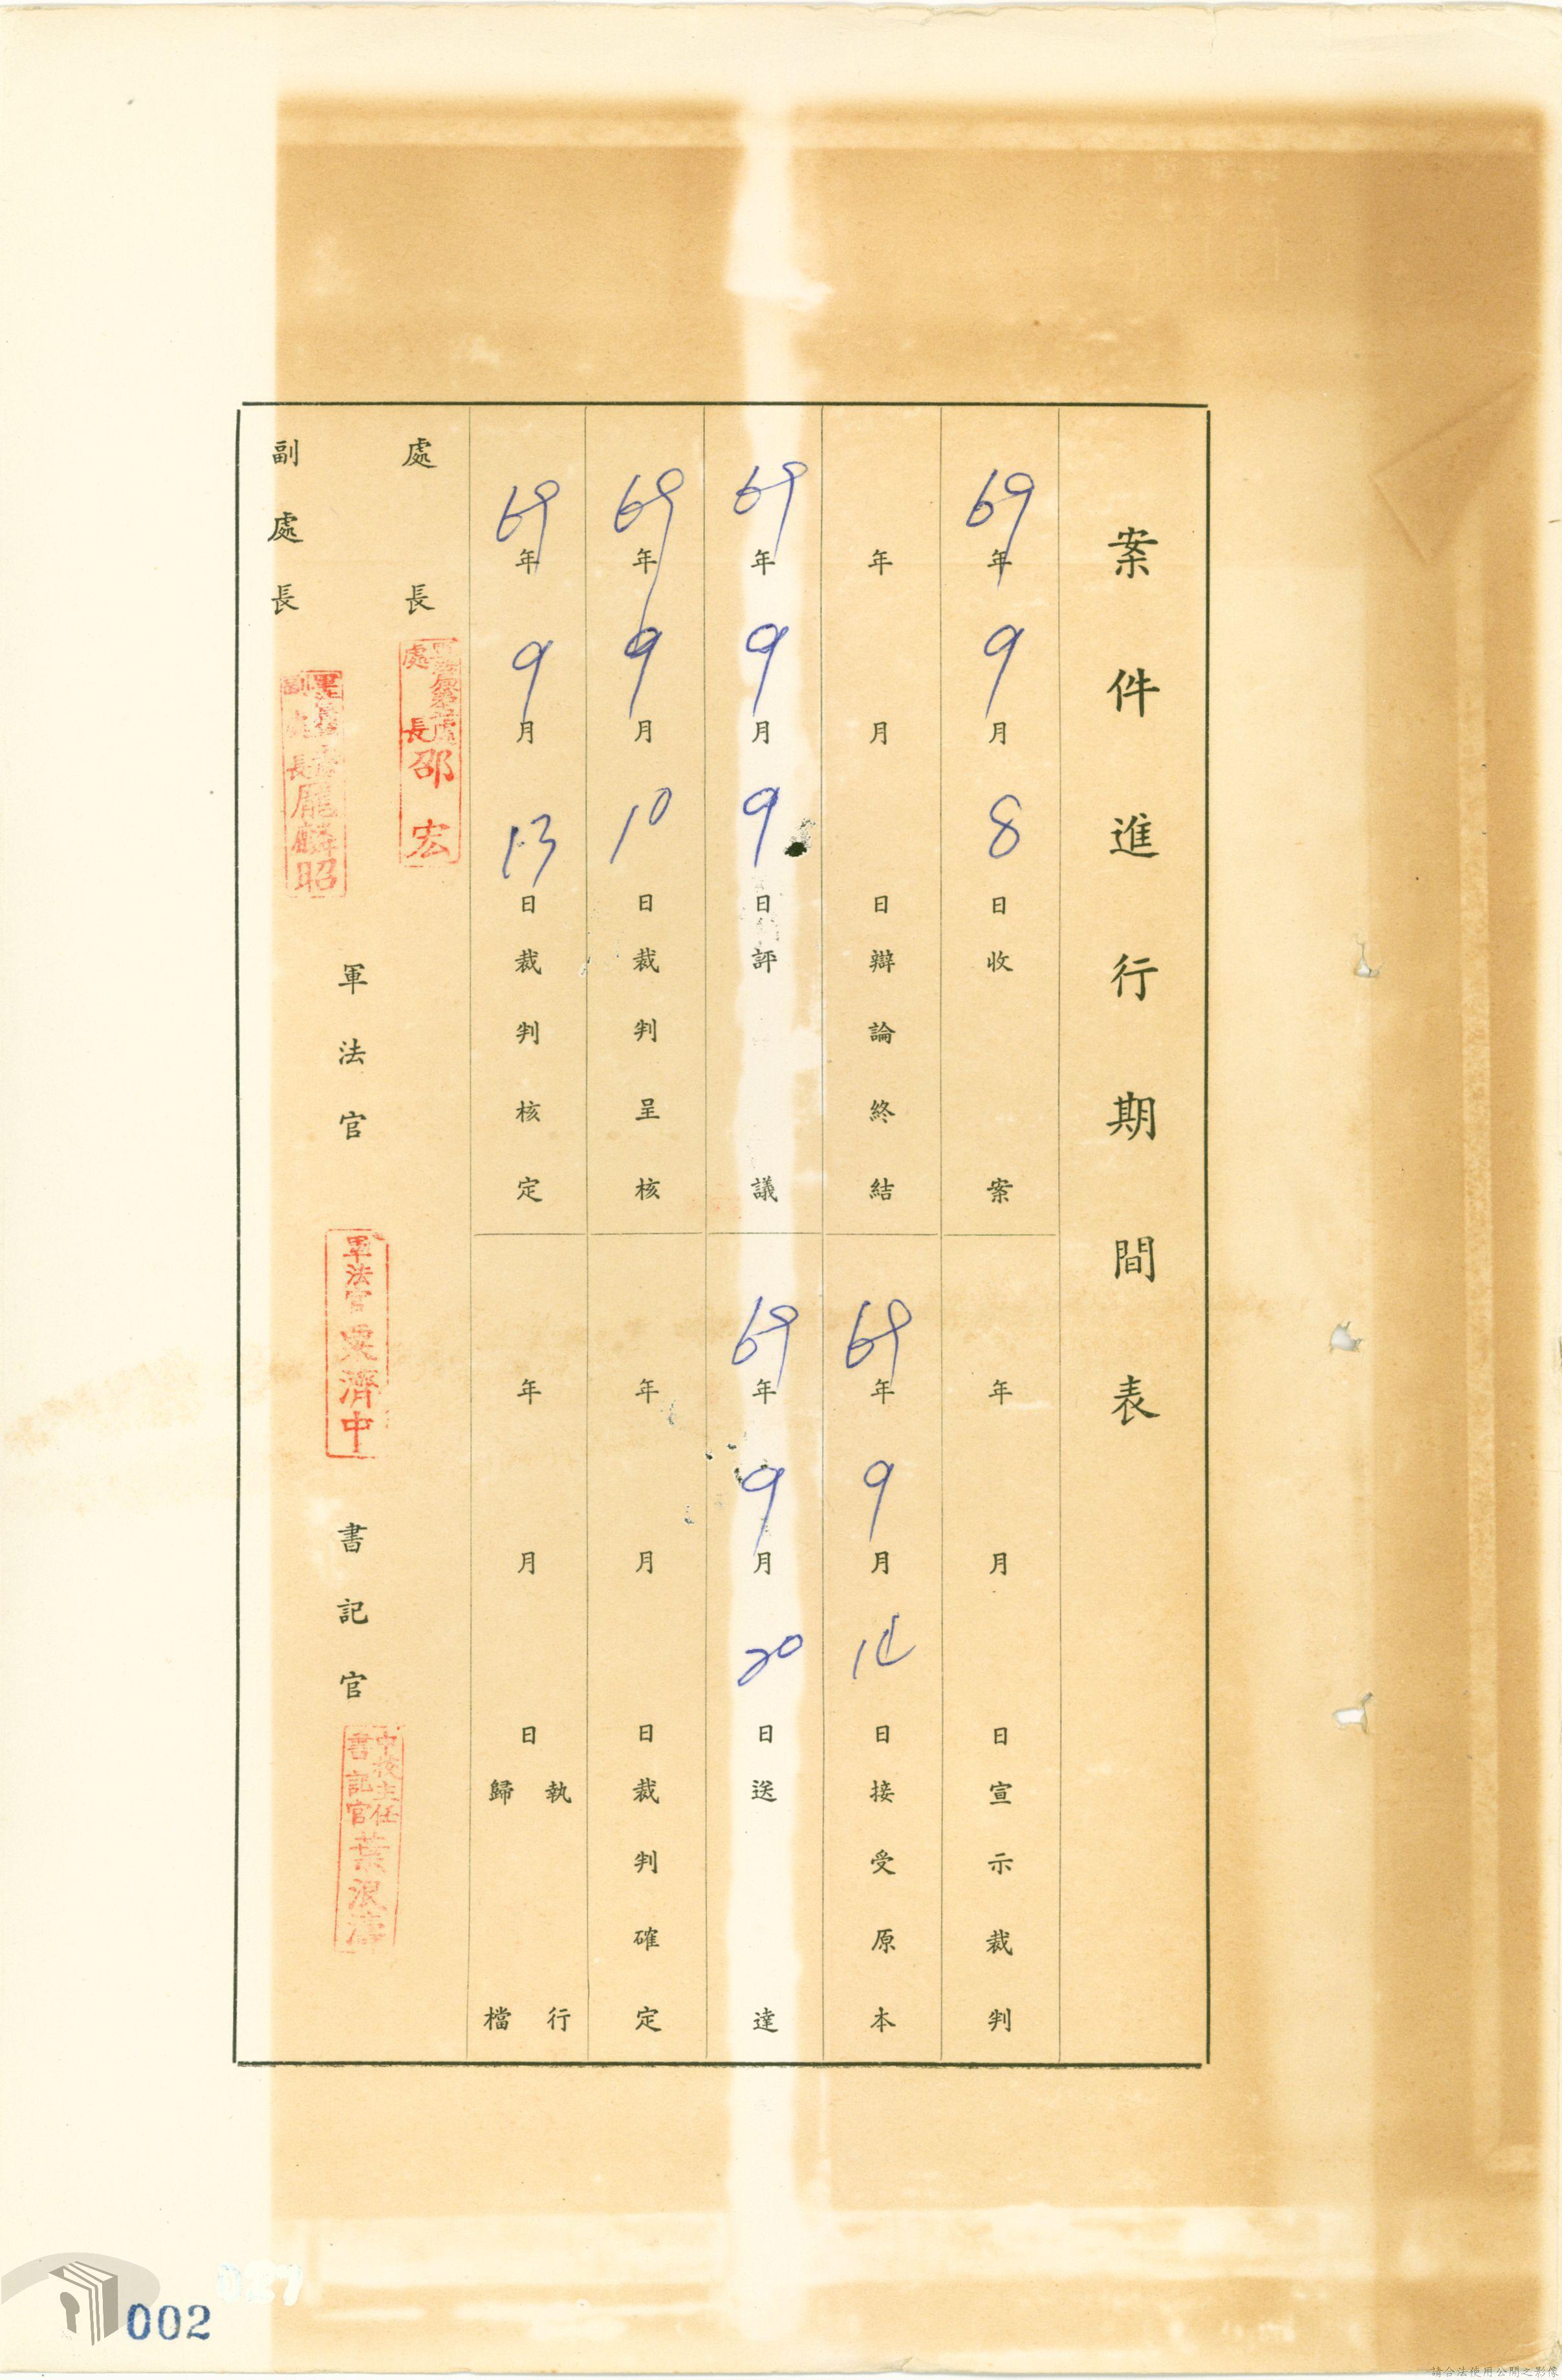 案件進行期間表
69年9月8日收案
年月日宣示裁判
年月日辯論終結
69年9月14日接受原本
69年9月9日評議
69年9月20日送達
69年9月10日裁判呈核
年月日裁判確定
69年9月13日裁判核定
年月日執行
歸檔
處長
處長邵宏
副處長
副處長龐麟昭
軍法官
軍法官 濟中
書記官
中校主任
書記官葉浪濤
002
027
請合法使用公開之影像